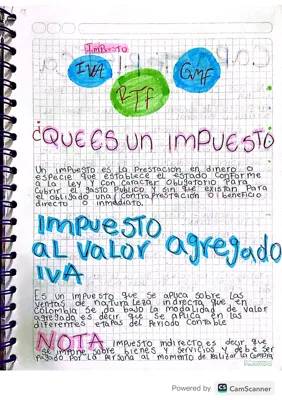 Impuesto
IVA
GMF
RTF
¿QUE ES UN IMPUESTO
Un impuesto es la prestacion en dinero o
especie que establece el estado conforme
a la ley y con caracter obligatorio para
cubrir el gasto publico y sin que existan para
el obligado una contraprestacion o beneficio
directo o inmediato.
IMPUESTO
al Valor agregado
IVA
Es un impuesto que se aplica sobre las
ventas de naturaleza indirecta que en
Colombia se da bajo la modalidad de valor
agregado es decir que se aplica en las
diferentes etapas del periodo contable
NOTA impuesto indirecto es decir, que
se impone sobre bienes y servicios y debe ser
pagado por la persona al momento de realizar la compra
Powered by CS CamScanner